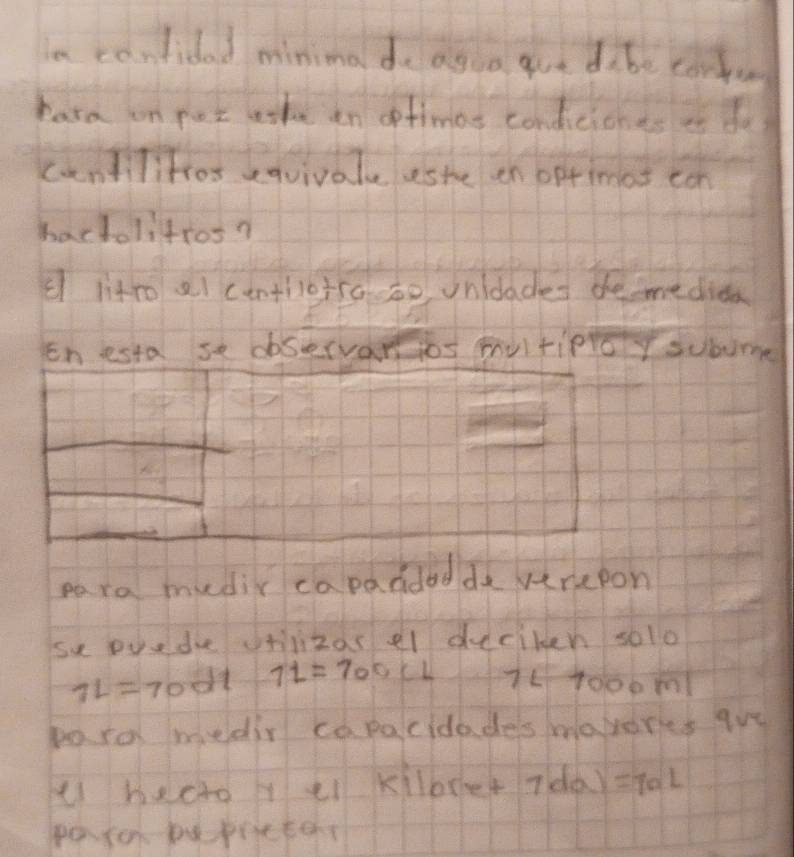 la cantidad minima de agua que debe
para un pez este en optimos condiciones es de
centilitros equivale este en optimos con
hactolitros?
El litro el centilotro so unidades de medida
En esta se observan los multiplo y subume
para medir capacidad de verepon
se puede utilizas el deciken solo
1L=10dl 1L=100cL 1L 1000ml
para medir capacidades mayores que
el hecto y el kiloret 1dal=10L
para